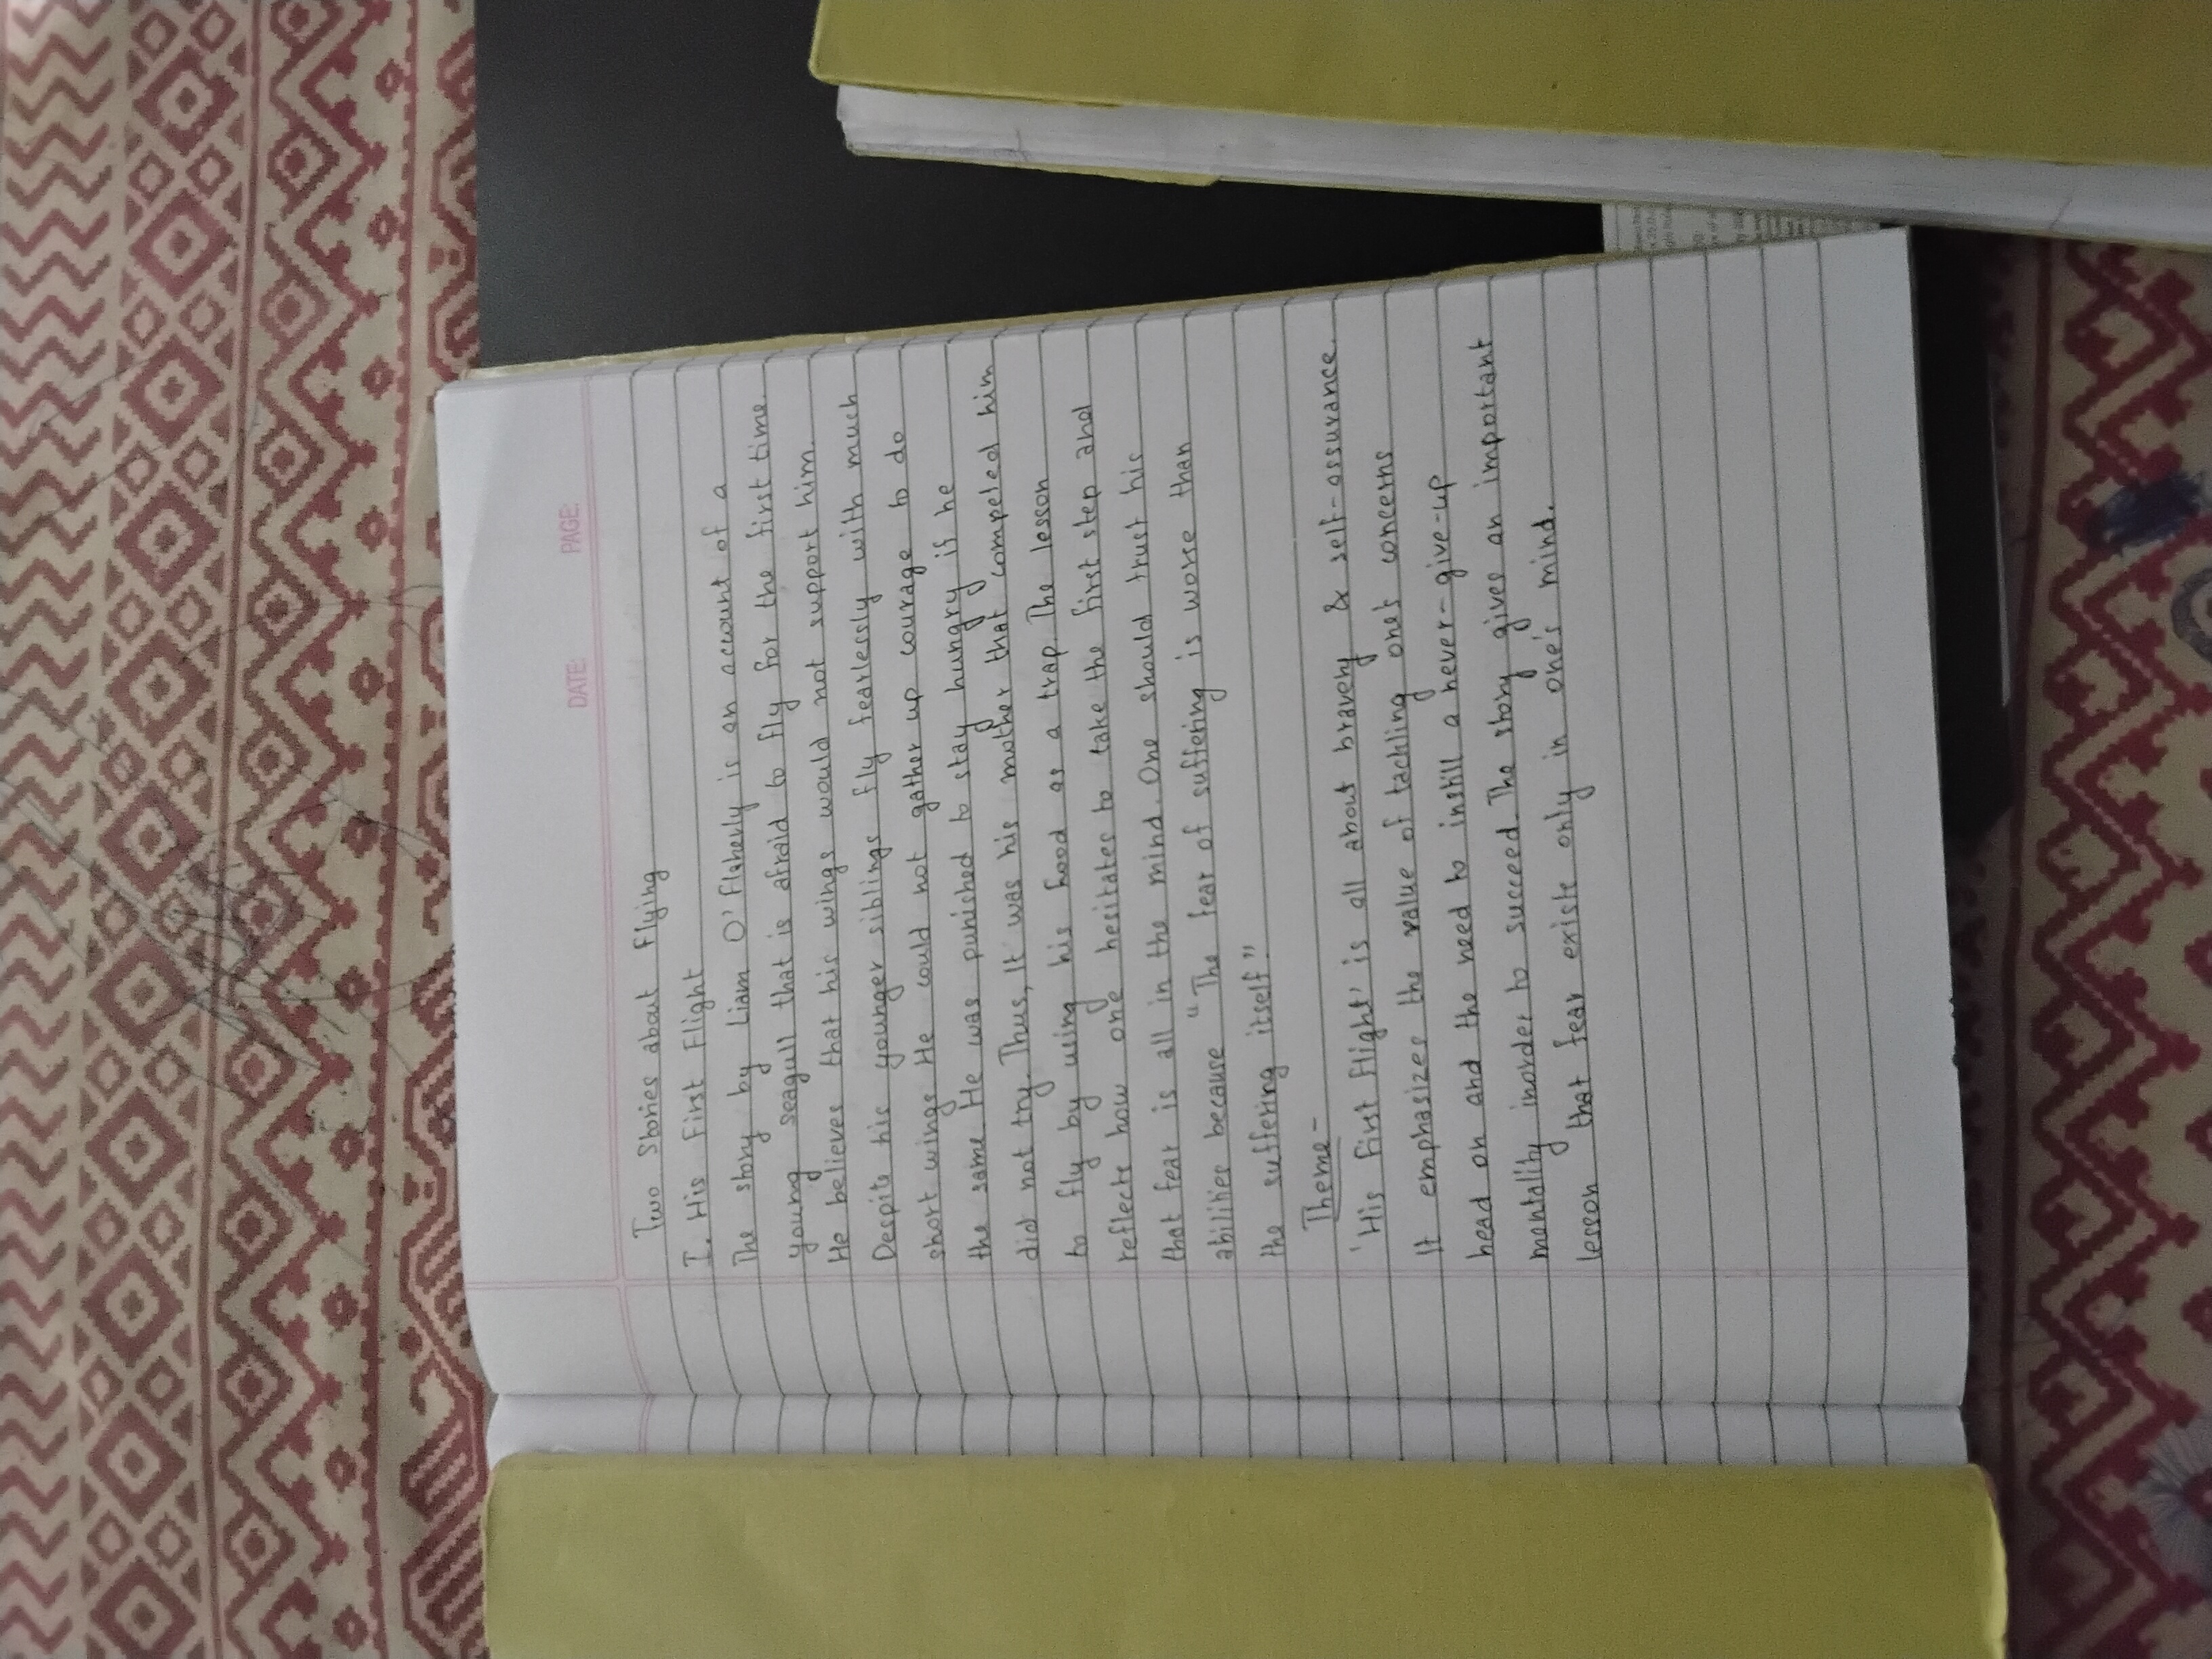 DATE: PAGE:
Two Stories about Flying
I. His First Flight
The story by Liam O'Flaherly is an account of a
young seagull that is afraid to fly for the first time.
He believes that his wings would not support him.
Despite his younger siblings fly fearlessly with much
short wings. He could not gather up courage to do
the same. He was punished to stay hungry is he
did not try. Thus, It was his mother that compeled him
to fly by using his hood as a trap. The lesson
reflects how one hesitates to take the first step and
that fear is all in the mind. One should trust his
abilities because "The fear of suffering is worse than
the suffering itself".
Theme-
'His first flight' is all about bravery & self-assurance.
It emphasizes the value of tackling one's concerns
head on and the need to instill a never-give-up
mentality inorder to succeed. The story gives an important
lesson that fear exists only in one's mind.